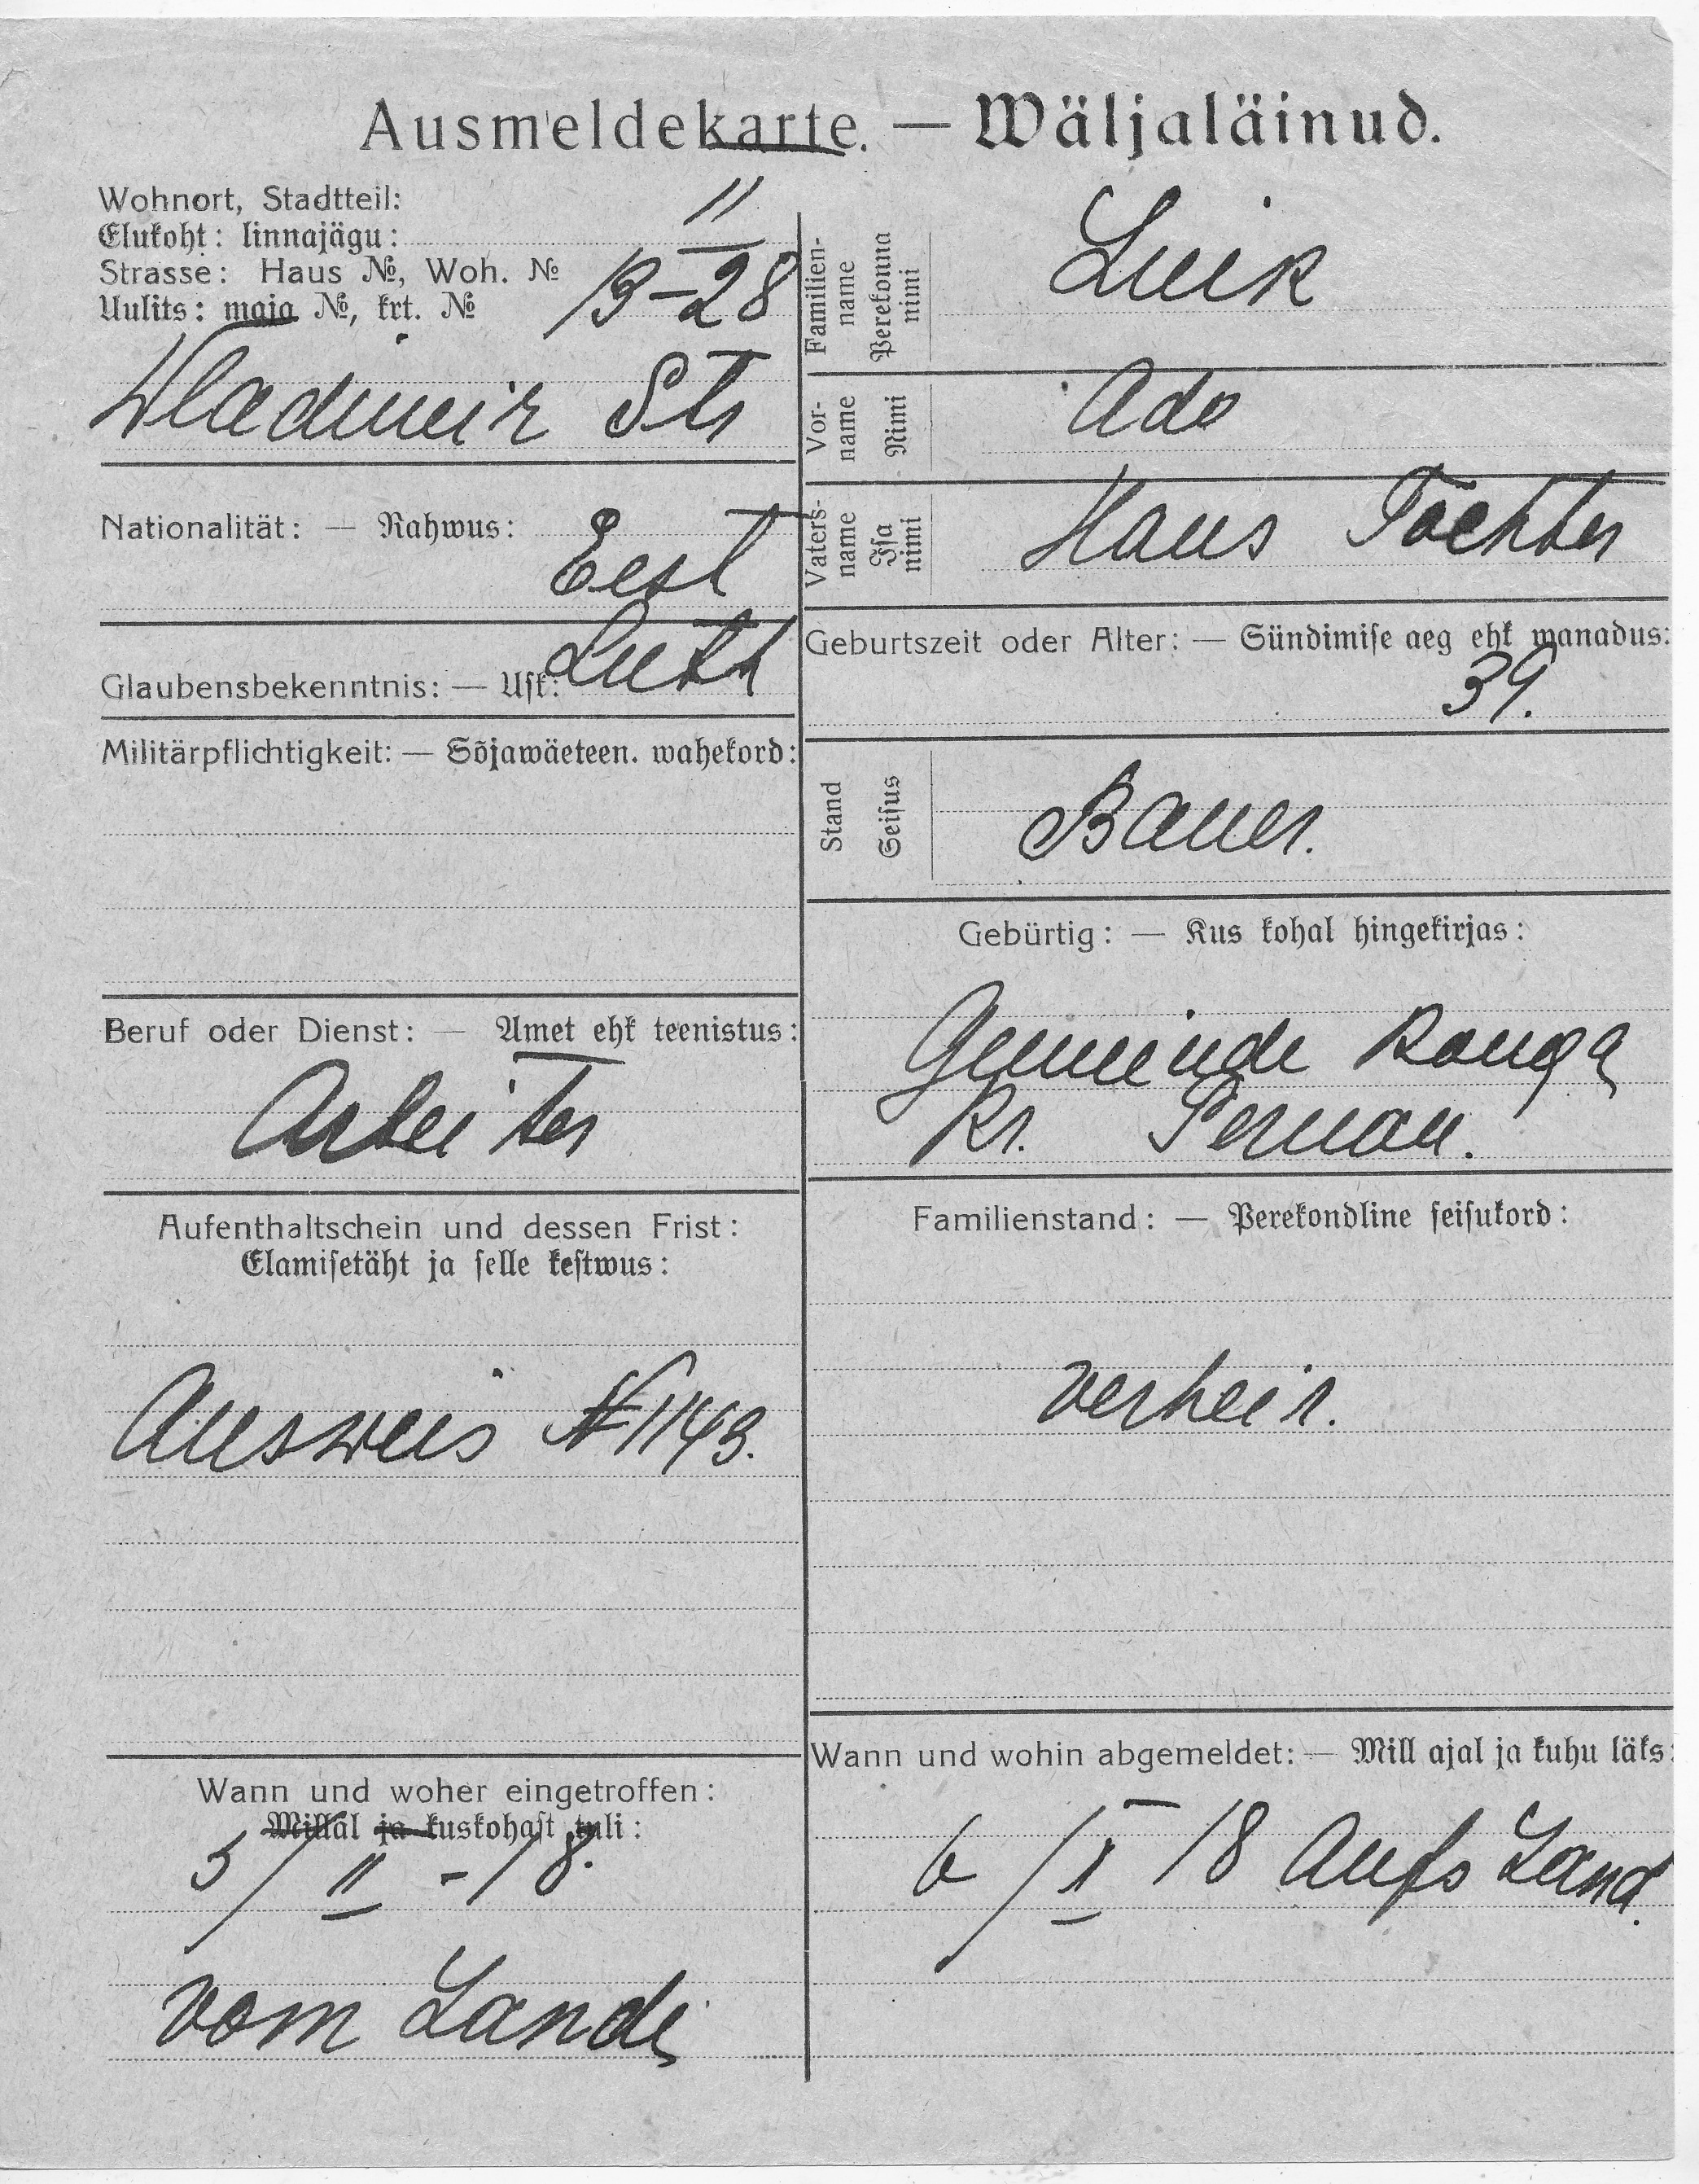 Ausmeldekarte. — Wäljaläinud.
Wohnort, Stadtteil:
Elukoht: linnajägu: II
Strasse: Haus №, Woh. №
Uulits: maja №, krt. № 13-28
Wladimir Str
Nationalität: — Rahwus:
Eest
Glaubensbekenntnis: — Usk: Luth
Militärpflichtigkeit: — Sõjawäeteen. wahekord:
Beruf oder Dienst: — Amet ehk teenistus:
Arbeiter
Aufenthaltschein und dessen Frist:
Elamisetäht ja selle kestwus:
Ausweis № 1143.
Wann und woher eingetroffen:
Millal ja kuskohast tuli:
5/II-18.
vom Lande
Familien-
name
Perekonna
nimi
Luik
Vor-
name
Nimi
Ado
Vaters-
name
Isa
nimi
Hans Tochter
Geburtszeit oder Alter: — Sündimise aeg ehk wanadus:
39.
Stand
Seisus
Bauer.
Gebürtig: — Kus kohal hingekirjas:
Gemeinde
Kr. Pernau.
Familienstand: — Perekondline seisukord:
verheir.
Wann und wohin abgemeldet: — Mill ajal ja kuhu läks:
6/X 18 Aufs Land.